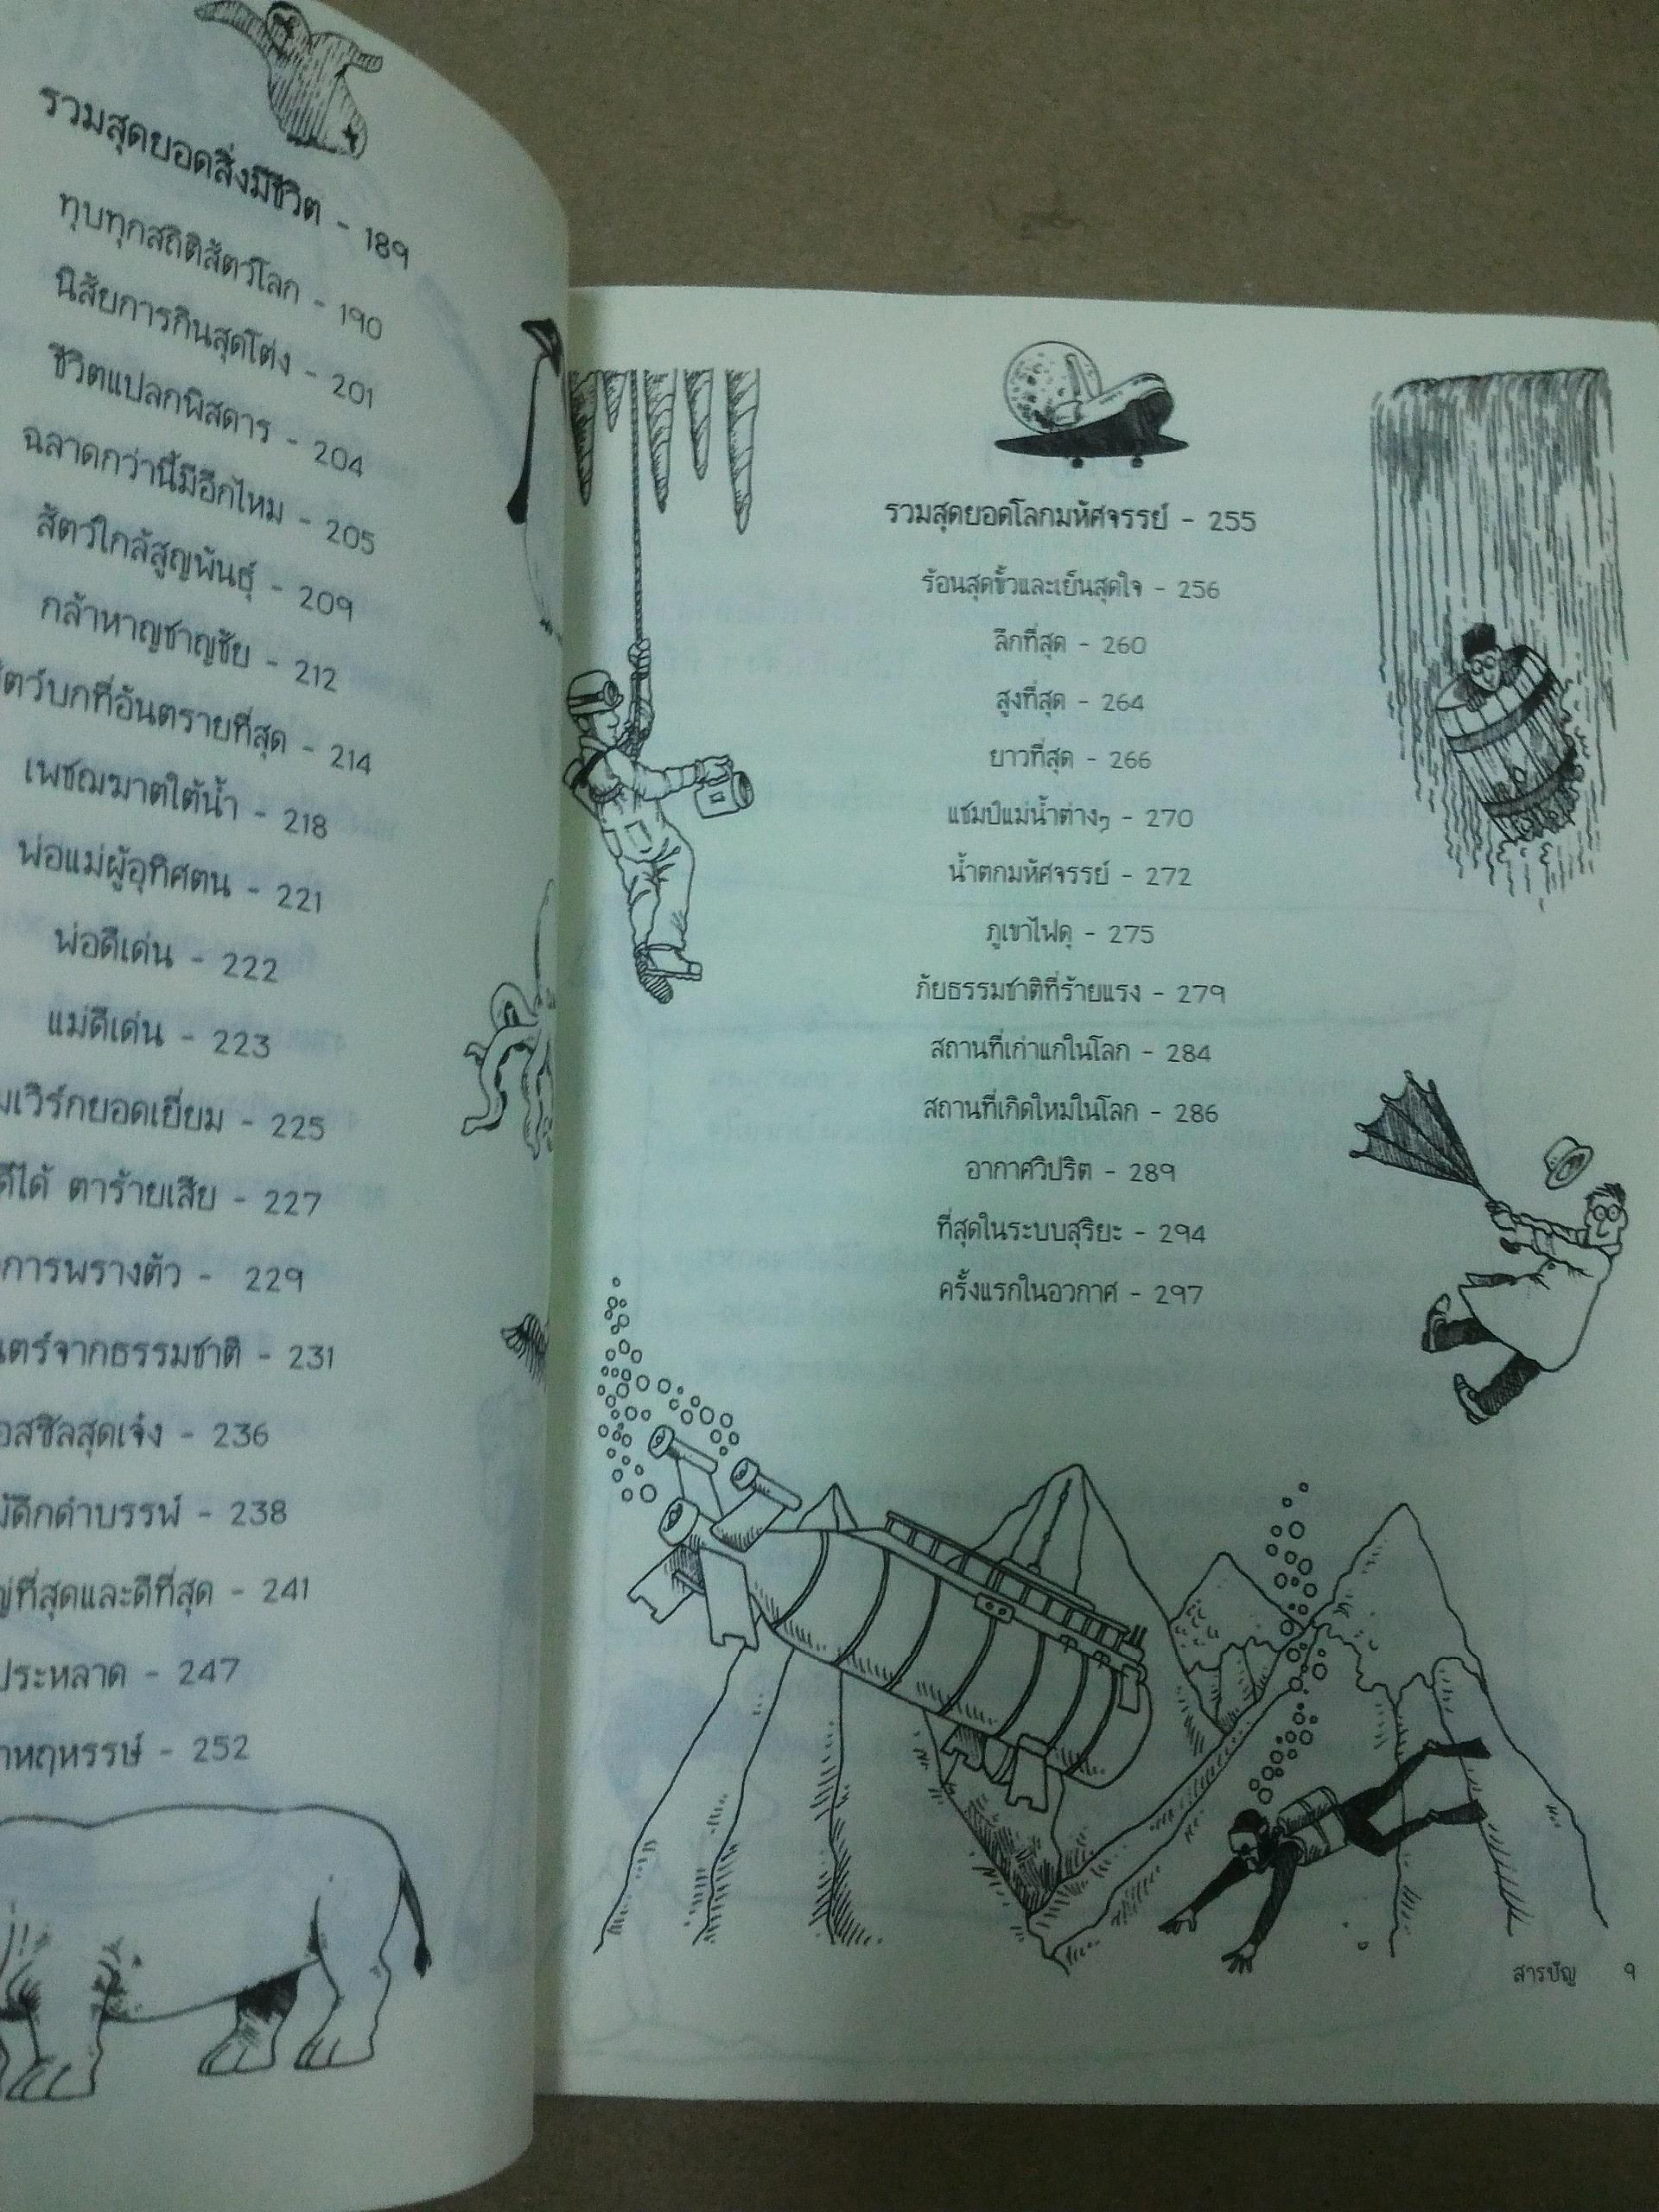 รวมสุดยอดสิ่งมีชีวิต - 189
ทุบทุกสถิติสัตว์โลก - 190
นิสัยการกินสุดโต่ง - 201
ชีวิตแปลกพิสดาร - 204
ฉลาดกว่านี้มีอีกไหม - 205
สัตว์ใกล้สูญพันธุ์ - 209
กล้าหาญชาญชัย - 212
สัตว์บกที่อันตรายที่สุด - 214
เพชฌฆาตใต้น้ำ - 218
พ่อแม่ผู้อุทิศตน - 221
พ่อดีเด่น - 222
แม่ดีเด่น - 223
มเวิร์กยอดเยี่ยม - 225
ดีได้ ตาร้ายเสีย - 227
การพรางตัว - 229
ตร์จากธรรมชาติ - 231
อสซิลสุดเจ๋ง - 236
ดึกดำบรรพ์ - 238
ที่สุดและดีที่สุด - 241
ประหลาด - 247
หฤหรรษ์ - 252
รวมสุดยอดโลกมหัศจรรย์ - 255
ร้อนสุดขั้วและเย็นสุดใจ - 256
ลึกที่สุด - 260
สูงที่สุด - 264
ยาวที่สุด - 266
แชมป์แม่น้ำต่างๆ - 270
น้ำตกมหัศจรรย์ - 272
ภูเขาไฟดุ - 275
ภัยธรรมชาติที่ร้ายแรง - 279
สถานที่เก่าแก่ในโลก - 284
สถานที่เกิดใหม่ในโลก - 286
อากาศวิปริต - 289
ที่สุดในระบบสุริยะ - 294
ครั้งแรกในอวกาศ - 297
สารบัญ 9